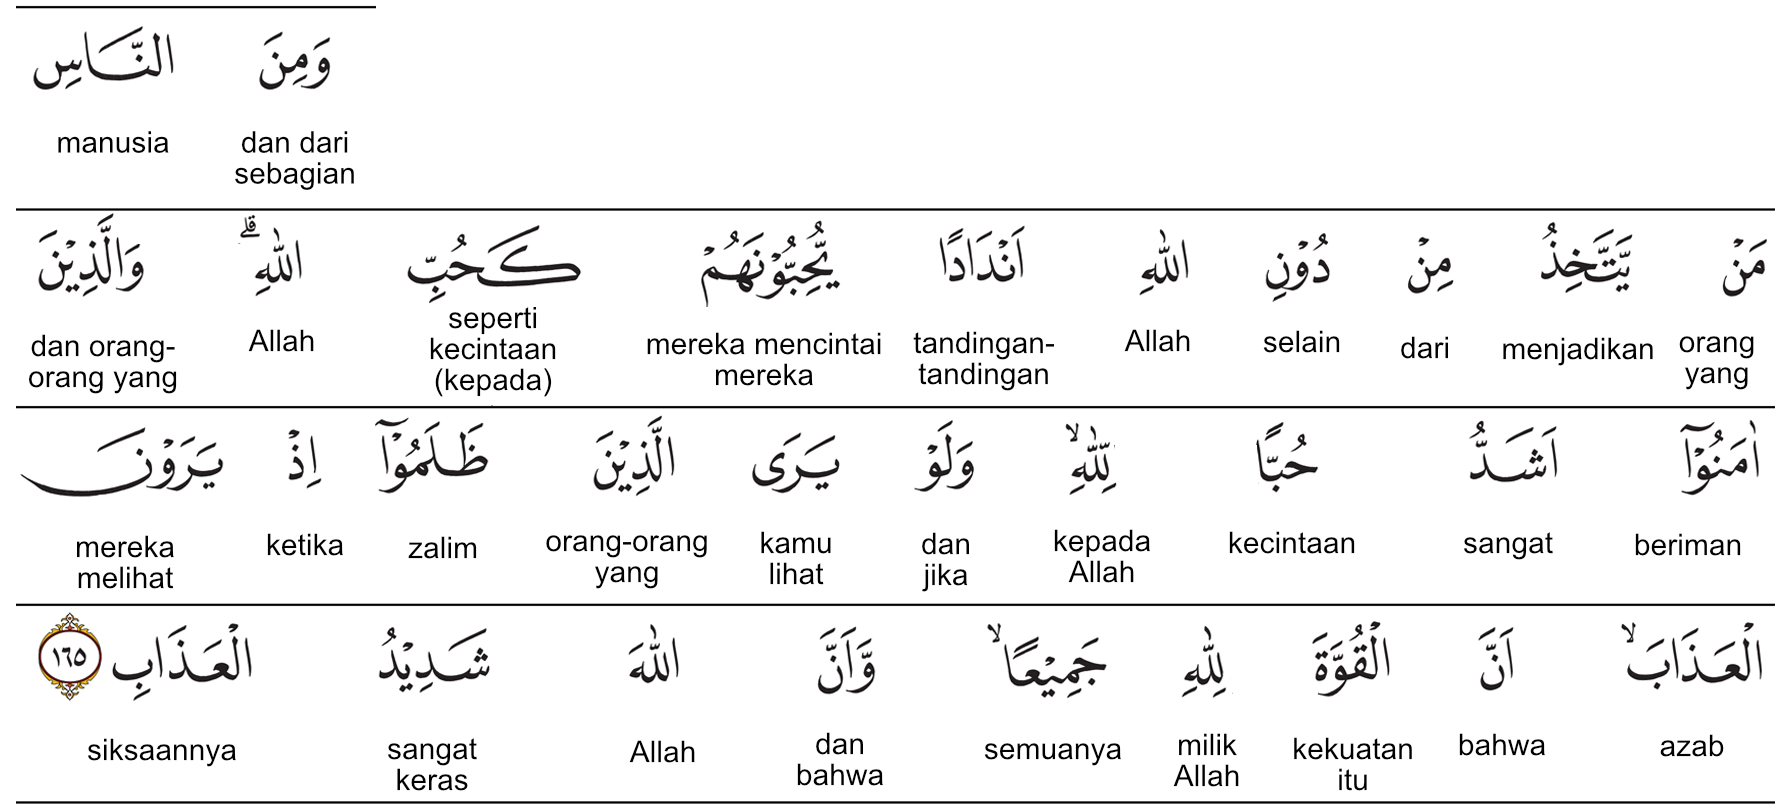 وَمِنَ النَّاسِ
dan dari sebagian manusia
مَنْ يَّتَّخِذُ مِنْ دُوْنِ اللّٰهِ اَنْدَادًا يُّحِبُّوْنَهُمْ كَحُبِّ اللّٰهِ ۗ وَالَّذِيْنَ
orang yang menjadikan dari selain Allah tandingan-tandingan mereka mencintai mereka seperti kecintaan (kepada) Allah dan orang-orang yang
اٰمَنُوْٓا اَشَدُّ حُبًّا لِّلّٰهِ ۙ وَلَوْ يَرَى الَّذِيْنَ ظَلَمُوْٓا اِذْ يَرَوْنَ
beriman sangat kecintaan kepada Allah dan jika kamu lihat orang-orang yang zalim ketika mereka melihat
الْعَذَابَ ۙ اَنَّ الْقُوَّةَ لِلّٰهِ جَمِيْعًا ۙ وَّاَنَّ اللّٰهَ شَدِيْدُ الْعَذَابِ ١٦٥
azab bahwa kekuatan itu milik Allah semuanya dan bahwa Allah sangat keras siksaannya